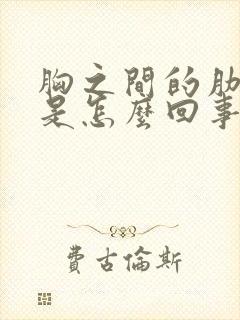 胸之間的肋
是怎麼回事
費古倫斯